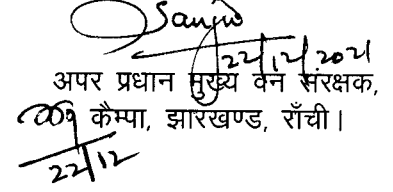 Sanjeev
22/12/2021
अपर प्रधान मुख्य वन संरक्षक,
कैम्पा, झारखण्ड, राँची।
22/12